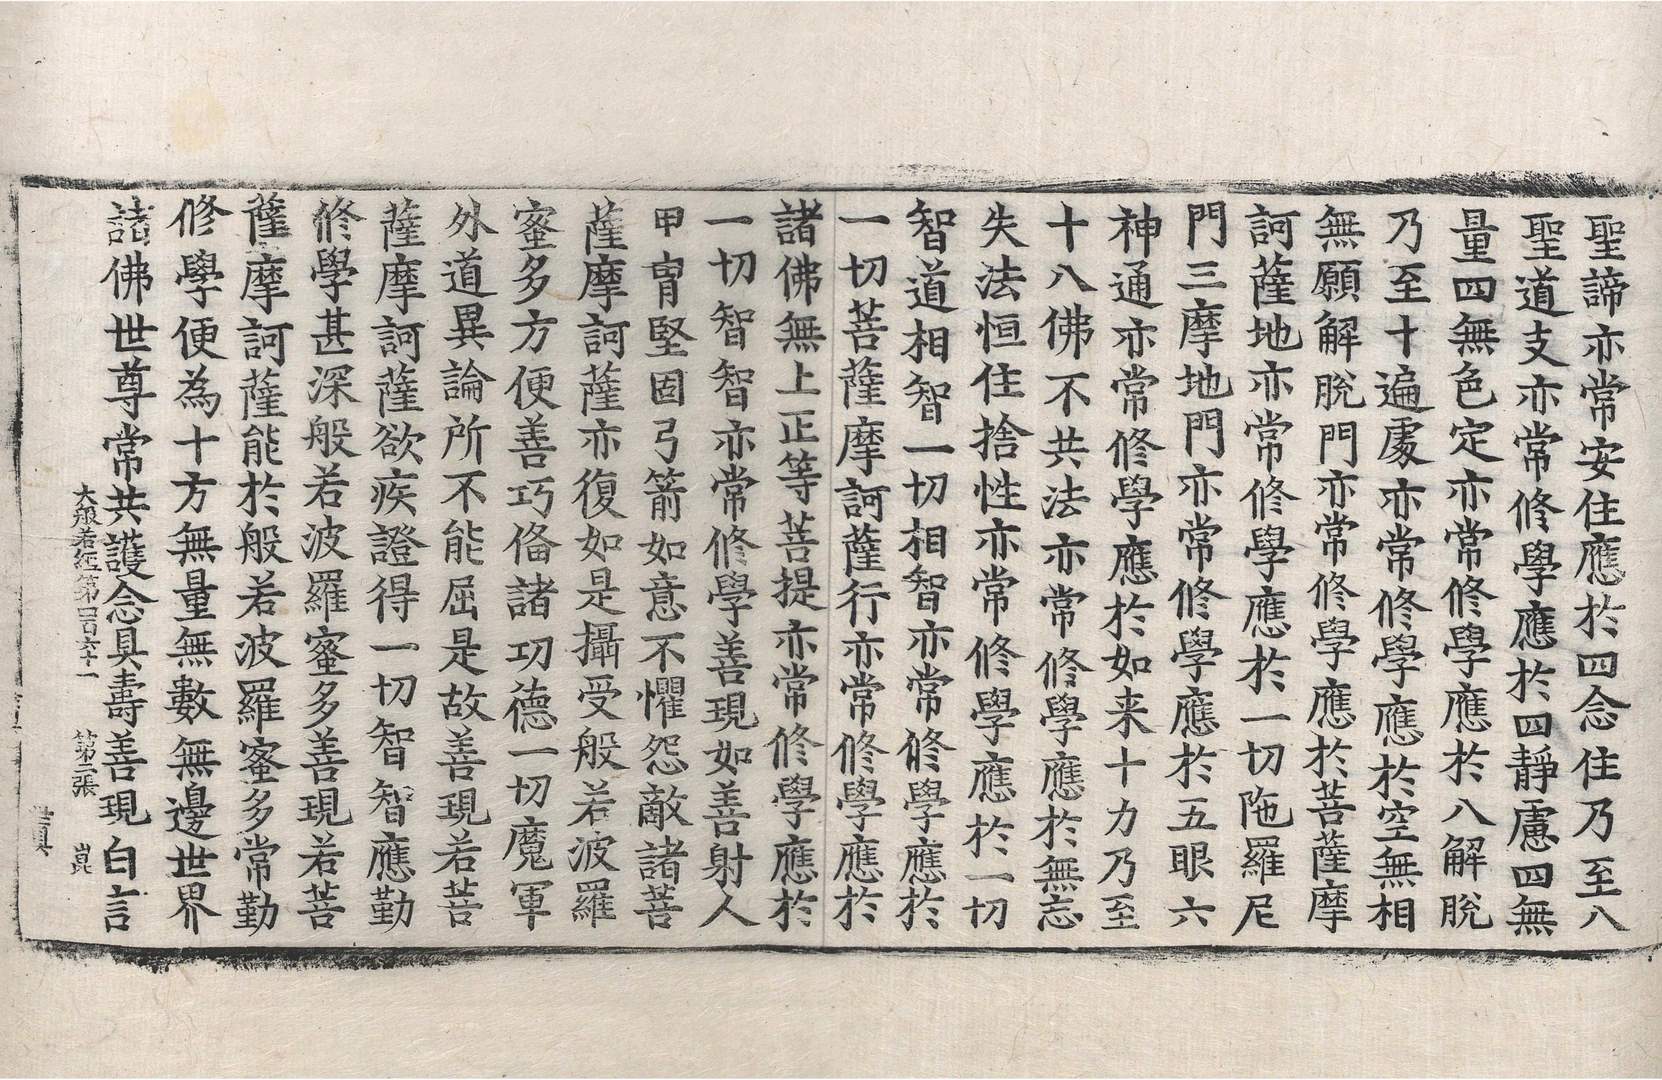 聖諦亦常安住應於四念住乃至八
聖道支亦常修學應於四靜慮四無
量四無色定亦常修學應於八解脫
乃至十遍處亦常修學應於空無相
無願解脫門亦常修學應於菩薩摩
訶薩地亦常修學應於一切陁羅尼
門三摩地門亦常修學應於五眼六
神通亦常修學應於如来十力乃至
十八佛不共法亦常修學應於無忘
失法恒住捨性亦常修學應於一切
智道相智一切相智亦常修學應於
一切菩薩摩訶薩行亦常修學應於
諸佛無上正等菩提亦常修學應於
一切智智亦常修學善現如善射人
甲冑堅固弓箭如意不懼怨敵諸菩
薩摩訶薩亦復如是攝受般若波羅
蜜多方便善巧俻諸功德一切魔軍
外道異論所不能屈是故善現若菩
薩摩訶薩欲疾證得一切智智應勤
修學甚深般若波羅蜜多善現若菩
薩摩訶薩能於般若波羅蜜多常勤
修學便為十方無量無數無邊世界
諸佛世尊常共護念具壽善現白言
大般若經第四百六十一 第二張 崑